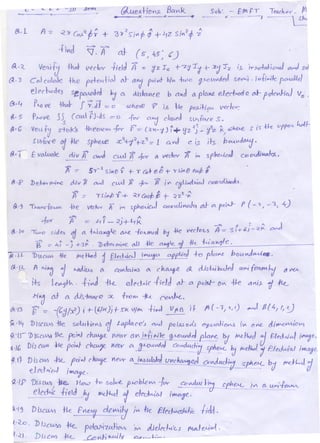 Questions Bank Sub:- EMFT Teacher
Q.1 A = 2x cos²φ r̂ + 3r² sinφ φ̂ + 4z sin²φ ẑ
find ∇·A at (5, 45°, 6)
Q.2 Verify that vector field A = yz Ix + zy Iy + xy Iz is irrotational and
Q.3 Calculate the potential at any point btn two grounded semi-infinite parallel
electrodes separated by a distance b and a plane electrode at potential V₀.
Q.4 Prove that ∫ r·dl = 0 where r is the position vector.
Q.5 Prove ∫∫ (curl F)·ds = 0 for any closed surface S.
Q.6 Verify stoke's theorem for F = (2x-y)i - yz²j - y²z k, where S is the upper half
surface of the sphere x²+y²+z²=1 and c is its boundary.
Q.7 Evaluate div A and curl A for a vector A in spherical coordinates.
Q.8 Determine div A and curl A for A in cylindrical coordinates.
Q.9 Transform the vector A in spherical coordinates at a point P(-2, -3, 4)
for A = 4i - 2j - 4k
Q.10 Two sides of a triangle are formed by the vectors A = 3i+6j-2k and
B = 4i - j + 3k Determine all the angle of the triangle.
Q.11 Discuss the method of Electrical images applied to plane boundaries.
Q.12 A ring of radius a contains a charge q distributed uniformly over
its length. find the electric field at a point on the axis of the
ring at a distance x from the centre.
Q.14 Discuss the solutions of Laplace's and poisson's equations in one dimension
Q.15 Discuss the point charge near an infinite grounded plane by method of Electrical image.
Q.16 Discuss the point charge near a grounded conducting sphere by method of Electrical image.
Q.17 Discuss the point charge near a insulated uncharged conducting sphere by method of
electrical image.
Q.18 Discuss How to solve problem for conducting sphere in a uniform
electric field by method of electrical image.
Q.19 Discuss the Energy density in the Electrostatic field.
Q.20. Discuss the polarization in dielectrics material.
Q.21. Discuss the Continuity